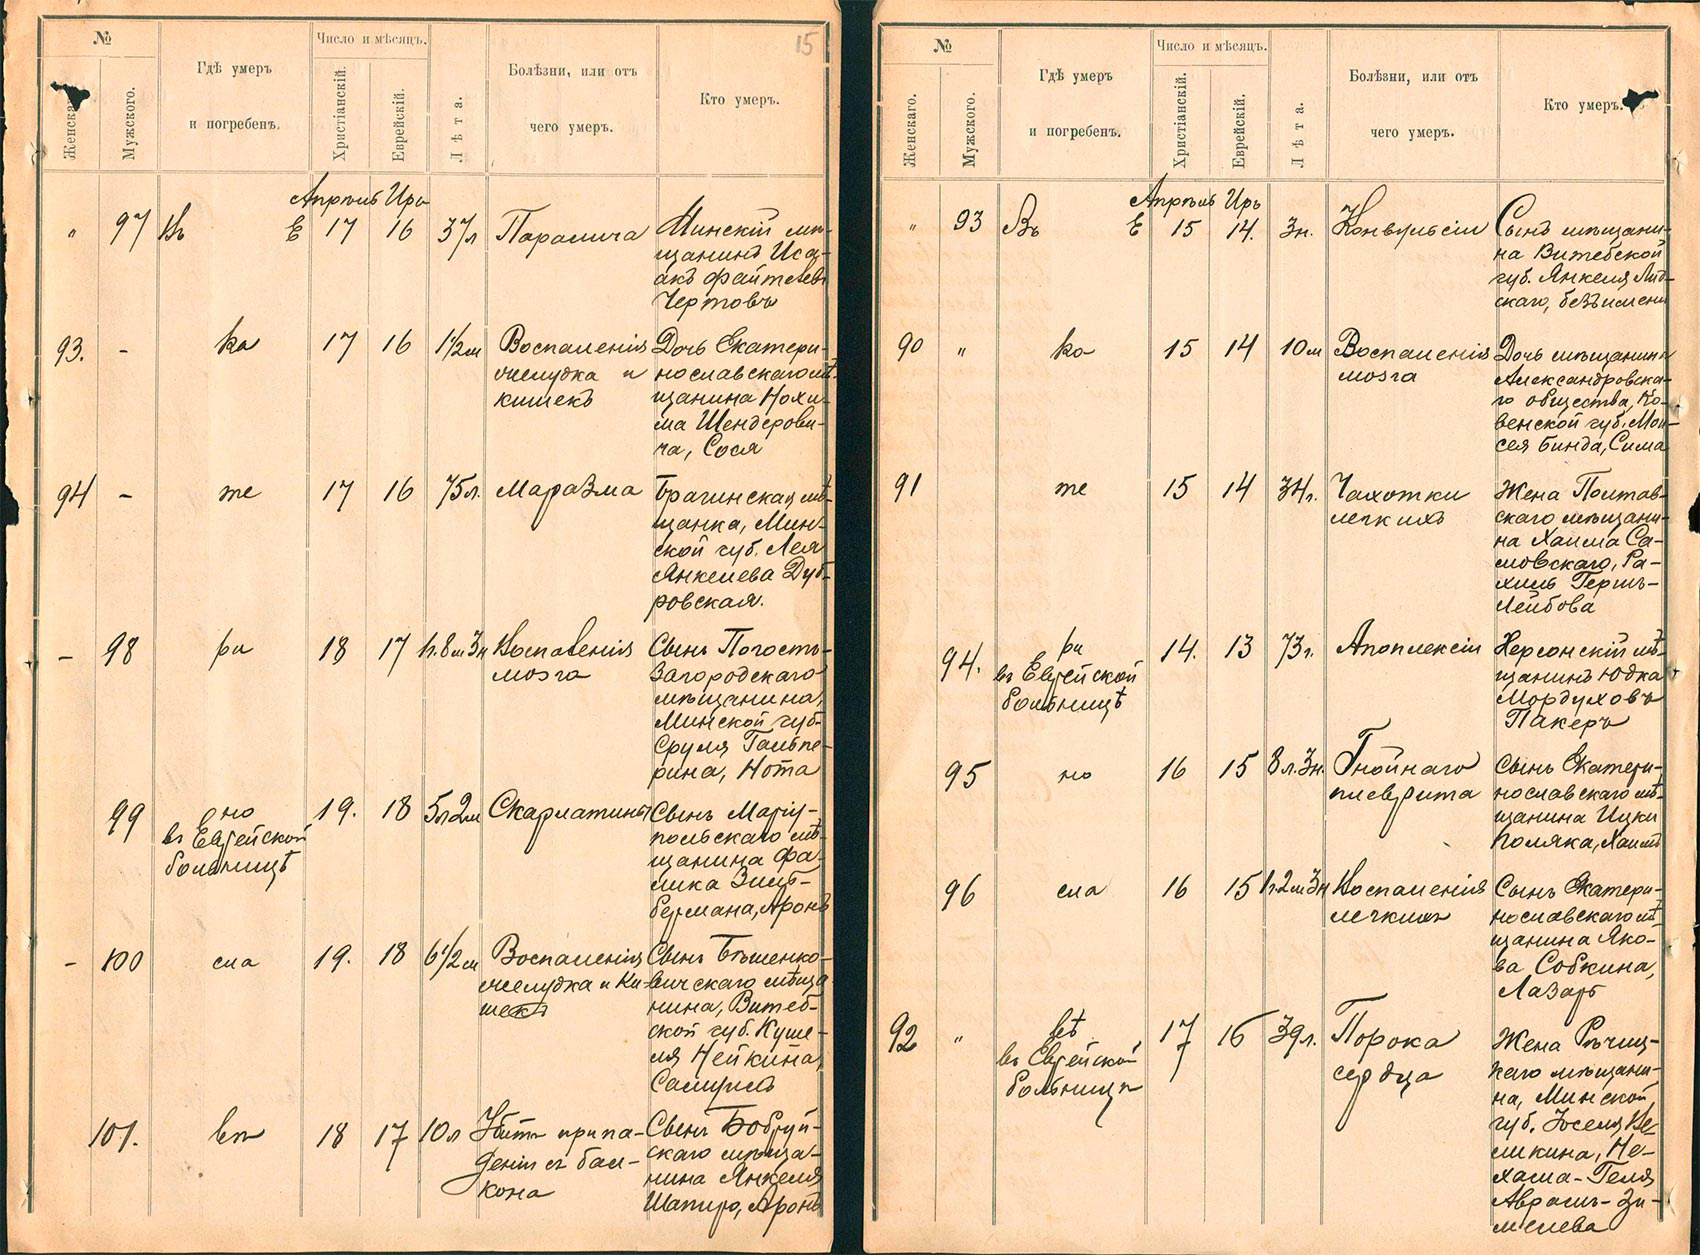 15
№
Женска
Мужского.
Гдѣ умеръ
и погребенъ.
Число и мѣсяцъ.
Христіанскій.
Еврейскій.
Лѣта.
Болѣзни, или отъ
чего умеръ.
Кто умеръ.
Апрѣль Иръ
" 97 Въ Е 17 16 37л Паралича
Минскій мѣ-
щанинъ Иса-
акъ Файтелевъ
Чертовъ
93. - ка 17 16 1½м
Воспаленія
желудка и
кишекъ
Дочь Екатери-
нославскаго мѣ-
щанина Нохи-
ма Шендерови-
ча, Сося
94 - те 17 16 75л. Маразма
Брагинская мѣ-
щанка, Мин-
ской губ. Лея
Янкелева Дуб-
ровская.
- 98 ри 18 17 1г.8м3н
Воспаленія
мозга
Сынъ Погостъ-
Загородскаго
мѣщанина,
Минской губ.
Сруля Гальпе-
рина, Нота
99 но
въ Еврейской
больницѣ
19. 18 5л2м Скарлатины
Сынъ Маріу-
польскаго мѣ-
щанина Фа-
лика Зиль-
бермана, Аронъ
- 100 сла 19. 18 6½м
Воспаленія
желудка и Ки-
шекъ
Сынъ Бѣшенко-
вичскаго мѣща
нина, Витеб-
ской губ. Куше-
ля Нейкина,
Самуилъ
101. вѣ 18 17 10л
Убитъ при па-
деніи съ бал-
кона
Сынъ Бобруй-
скаго мѣща-
нина Янкеля
Шапиро, Аронъ
№
Женскаго.
Мужского.
Гдѣ умеръ
и погребенъ.
Число и мѣсяцъ.
Христіанскій.
Еврейскій.
Лѣта.
Болѣзни, или отъ
чего умеръ.
Кто умеръ.
Апрѣль Иръ
" 93 Въ Е 15 14. 3н. Конвульсіи
Сынъ мѣщани-
на Витебской
губ. Янкеля Лид-
скаго, безъимени
90 " ка 15 14 10м
Воспаленія
мозга
Дочь мѣщанина
Александровска-
го общества, Ко-
венской губ. Мои-
сея Бинда, Сима
91 те 15 14 34г.
Чахотки
легкихъ
Жена Полтав-
скаго мѣщани-
на Хаима Са-
мовскаго, Ра-
хиль Гершъ-
Лейбова
94. ри
въ Еврейской
больницѣ
14. 13 73г. Апоплексіи
Херсонскій мѣ-
щанинъ Юдка
Мордуховъ
Пакеръ
95 но 16 15 8л.3н.
Гнойнаго
плеврита
Сынъ Екатери-
нославскаго мѣ-
щанина Ицки
Поляка, Хаимъ
96 сла 16 15 1г.2м3н
Воспаленія
легкихъ
Сынъ Екатери-
нославскаго мѣ
щанина Яко-
ва Собкина,
Лазарь
92 " вѣ
въ Еврейской
больницѣ
17 16 39л.
Порока
сердца
Жена Рѣчиц-
каго мѣщани-
на, Минской
губ. Іоселя Ке-
ликина, Не-
хама-Геля
Аврамъ-Зи-
мелева